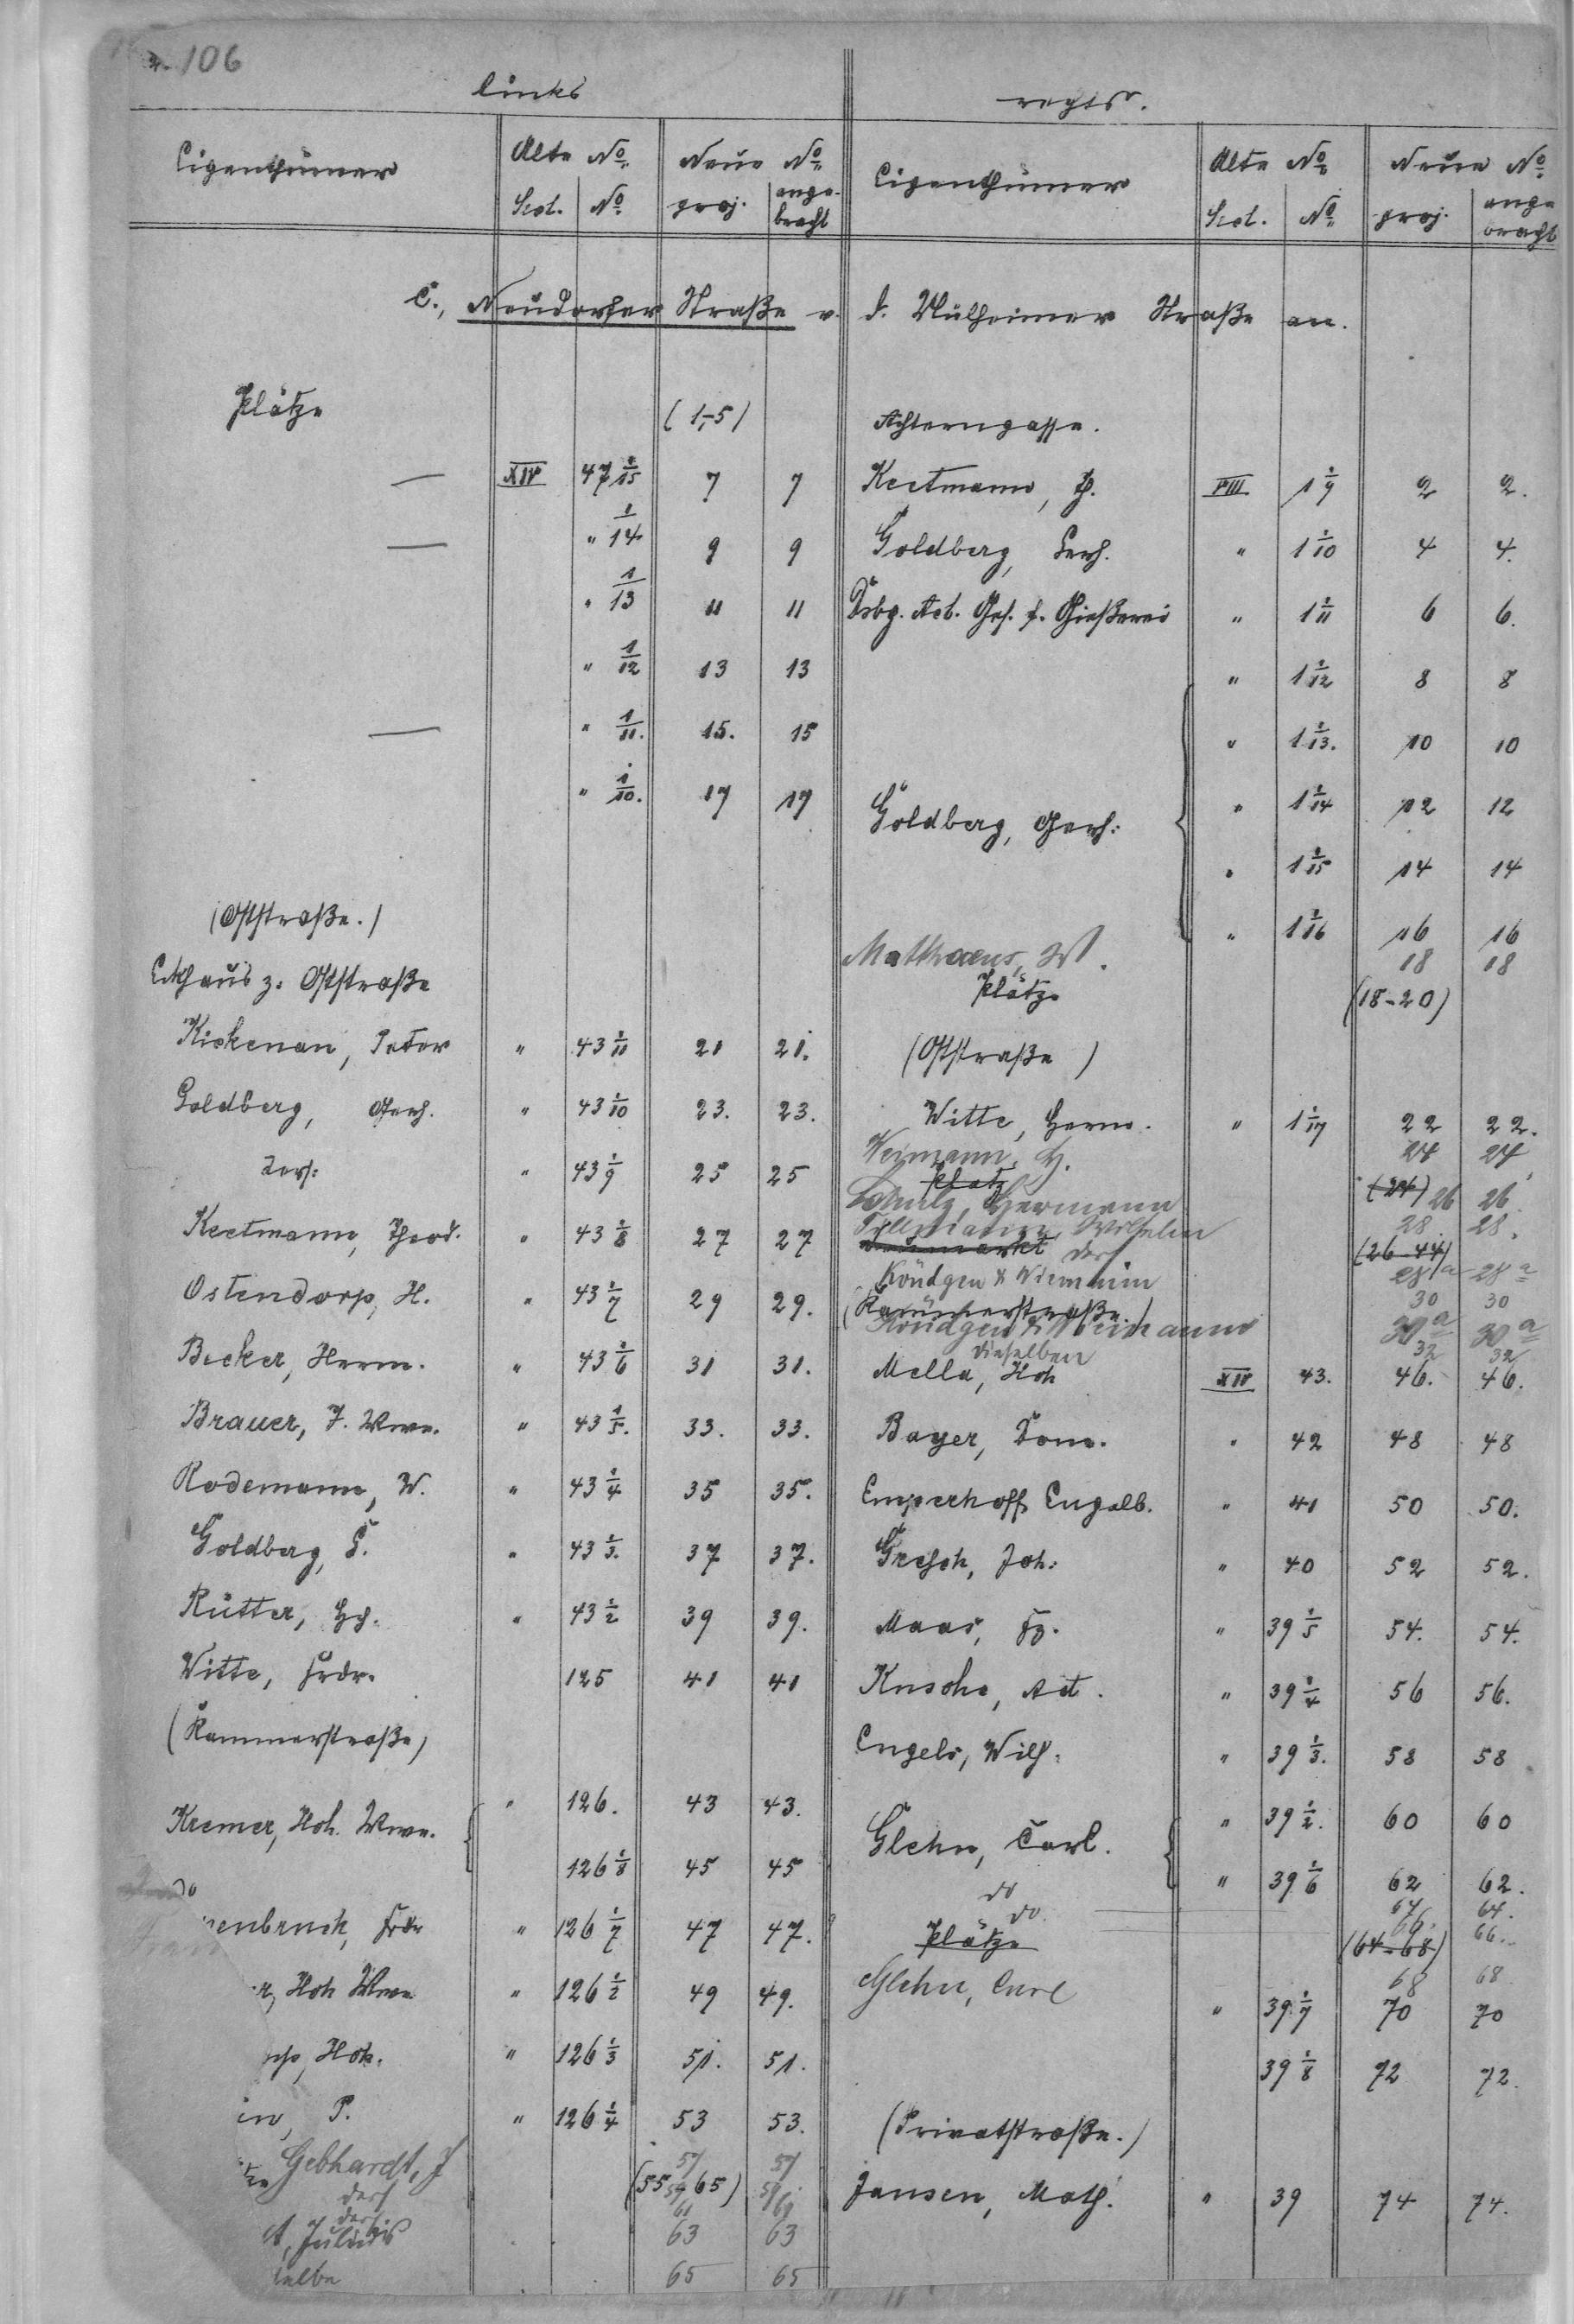 106
links
rechts.
Eigenthümer | Alte No. | Neue No. | Eigenthümer | Alte No. | Neue No.
Sect. | No. | proj. | ange-bracht | Sect. | No. | proj. | ange-bracht
C., Neudorfer Straße v. d. Mülheimer Straße an.
Plätze (1-5) | Achterngasse.
— XIV 47 1/15 7 7 | Keetmann, Th. VIII 1 1/9 2 2.
— " 1/14 9 9 | Goldberg, Gerh. " 1 1/10 4 4.
" 1/13 11 11 | Dsbg. Act. Ges. f. Gießerei " 1 1/11 6 6.
" 1/12 13 13 | " 1 1/12 8 8
— " 1/11. 15. 15 | " 1 1/13. 10 10
" 1/10. 17 17 | Goldberg, Gerh: " 1 1/14 12 12
" 1 1/15 14 14
(Oststraße.) | " 1 1/16 16 16
Matthaeus, W. 18 18
Eckhaus z. Oststraße | Plätze (18-20)
Kickenan, Peter " 43 1/11 21 21. | (Oststraße)
Goldberg, Gerh. " 43 1/10 23. 23. | Witte, Herm. " 1 1/17 22 22.
Weimann, H. 24 24
ders: " 43 1/9 25 25 | Platz (24)
Schulz, Hermann 26 26
Keetmann, Theod. " 43 1/8 27 27 | Wilhelm 28 28.
ders (26-44)
Köndgen & Niemann 28a 28a
Ostendorp, H. " 43 1/7 29 29. | 30 30
Köndgen & 30a 30a
dieselben 32 32
Becker, Herm. " 43 1/6 31 31. | Mella, Hch XIV 43. 46. 46.
Brauer, J. Wwe. " 43 1/5. 33. 33. | Bayer, Dom. " 42 48 48
Rodemann, W. " 43 1/4 35 35. | Emperhoff Engelb. " 41 50 50.
Goldberg, G. " 43 1/3. 37 37. | Gresch, Joh: " 40 52 52.
Rütter, Hch. " 43 1/2 39 39. | Maas, Fz. " 39 1/5 54. 54.
Witte, Frdr. 125 41 41 | Knsche, Act. " 39 1/4 56 56.
(Kammerstraße) | Engels, Wilh. " 39 1/3. 58 58
Kremer, Hch. Wwe. " 126. 43 43. | Glehn, Carl. " 39 1/2. 60 60
126 1/8 45 45 | " 39 1/6 62 62.
do 64.
enbruck, Frdr " 126 1/7 47 47. | do 66.
Plätze (64-68)
Hch Wwe " 126 1/2 49 49. | Glehn, Carl 68 68
" 39 1/7 70 70
Hch. " 126 1/3 51. 51. | 39 1/8 72 72.
P. " 126 1/4 53 53. | (Privatstraße.)
Gebhardt, J 57 57
(55 65) | Jansen, Math. " 39 74 74.
ders
ders.
Julius 63 63
65 65